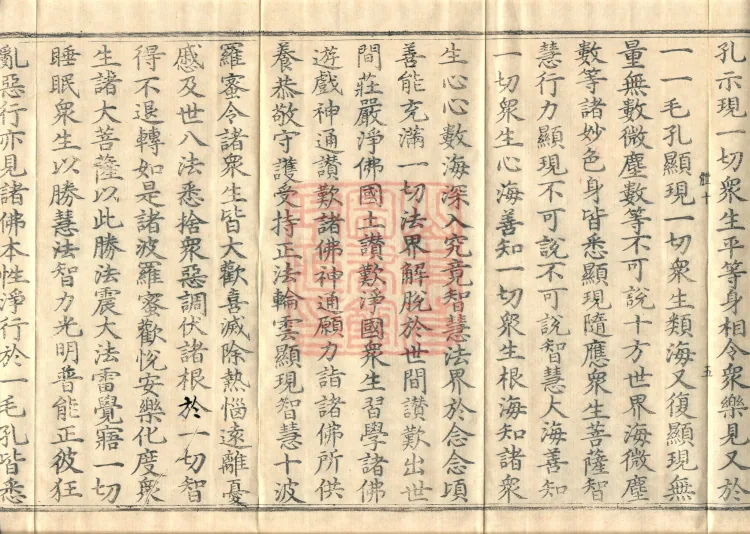 孔示現一切衆生平等身相令衆樂見又於
一一毛孔顯現一切衆生類海又復顯現無
體十
五
量無數微塵數等不可說十方世界海微塵
數等諸妙色身皆悉顯現隨應衆生菩薩智
慧行力顯現不可說不可說智慧大海善知
一切衆生心海善知一切衆生根海知諸衆
生心心數海深入究竟智慧法界於念念頃
善能充滿一切法界解脫於世間讃歎出世
間莊嚴淨佛國土讃歎淨國衆生習學諸佛
遊戲神通讃歎諸佛神通願力詣諸佛所供
養恭敬守護受持正法輪雲顯現智慧十波
羅蜜令諸衆生皆大歡喜滅除熱惱遠離憂
慼及世八法悉捨衆惡調伏諸根於一切智
得不退轉如是諸波羅蜜歡悅安樂化度衆
生諸大菩薩以此勝法震大法雷覺寤一切
睡眠衆生以勝慧法智力光明普能正彼狂
亂惡行亦見諸佛本性淨行於一毛孔皆悉